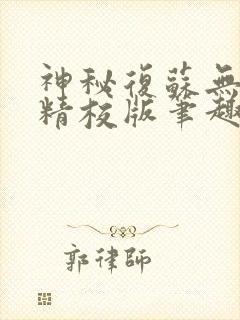 神秘復蘇無
精校版筆趣
郭律師